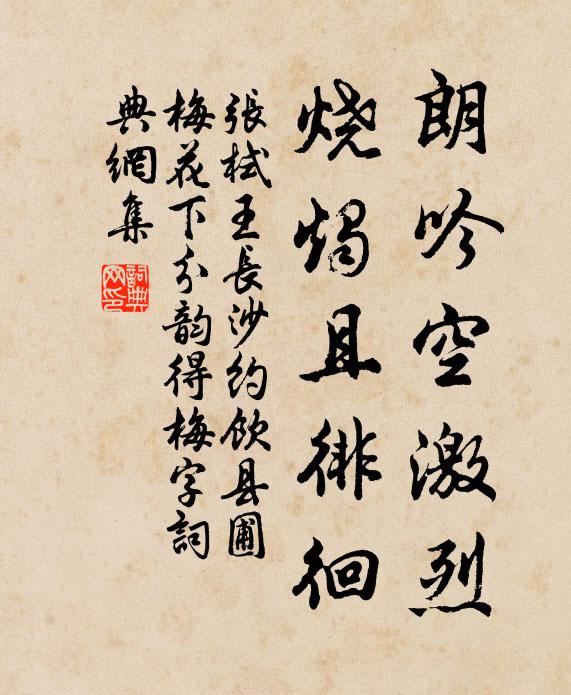 朗吟空激烈
烧烛且徘徊
張栻王長沙约飲县圃
梅花下分韵得梅字詞
典網集
詞典网印